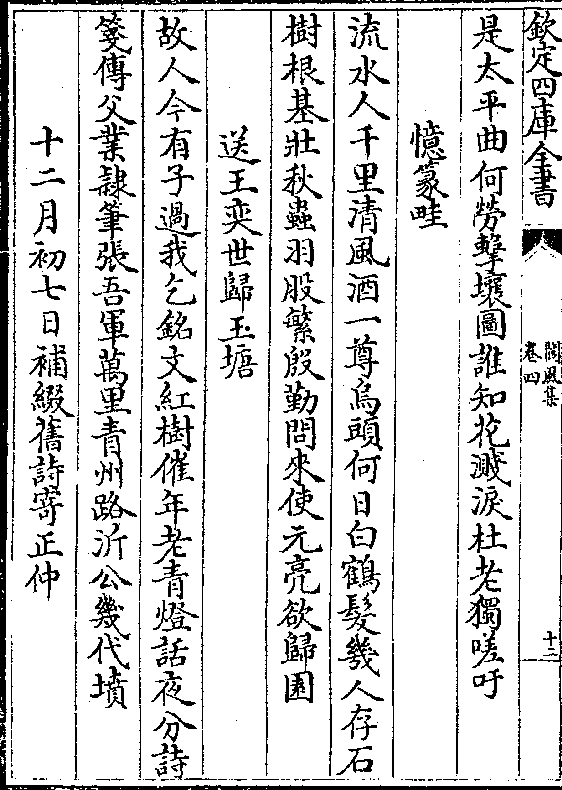 欽定四庫全書
閬風集
卷四
十三
是太平曲何勞擊壤圖誰知花濺淚杜老獨嗟吁
憶篆畦
流水人千里清風酒一尊烏頭何日白鶴髮幾人存石
樹根基壯秋蟲羽股繁殷勤問來使元亮欲歸園
送王奕世歸玉塘
故人今有子過我乞銘文紅樹催年老青燈話夜分詩
箋傳父業隷筆張吾軍萬里青州路沂公幾代墳
十二月初七日補綴舊詩寄正仲